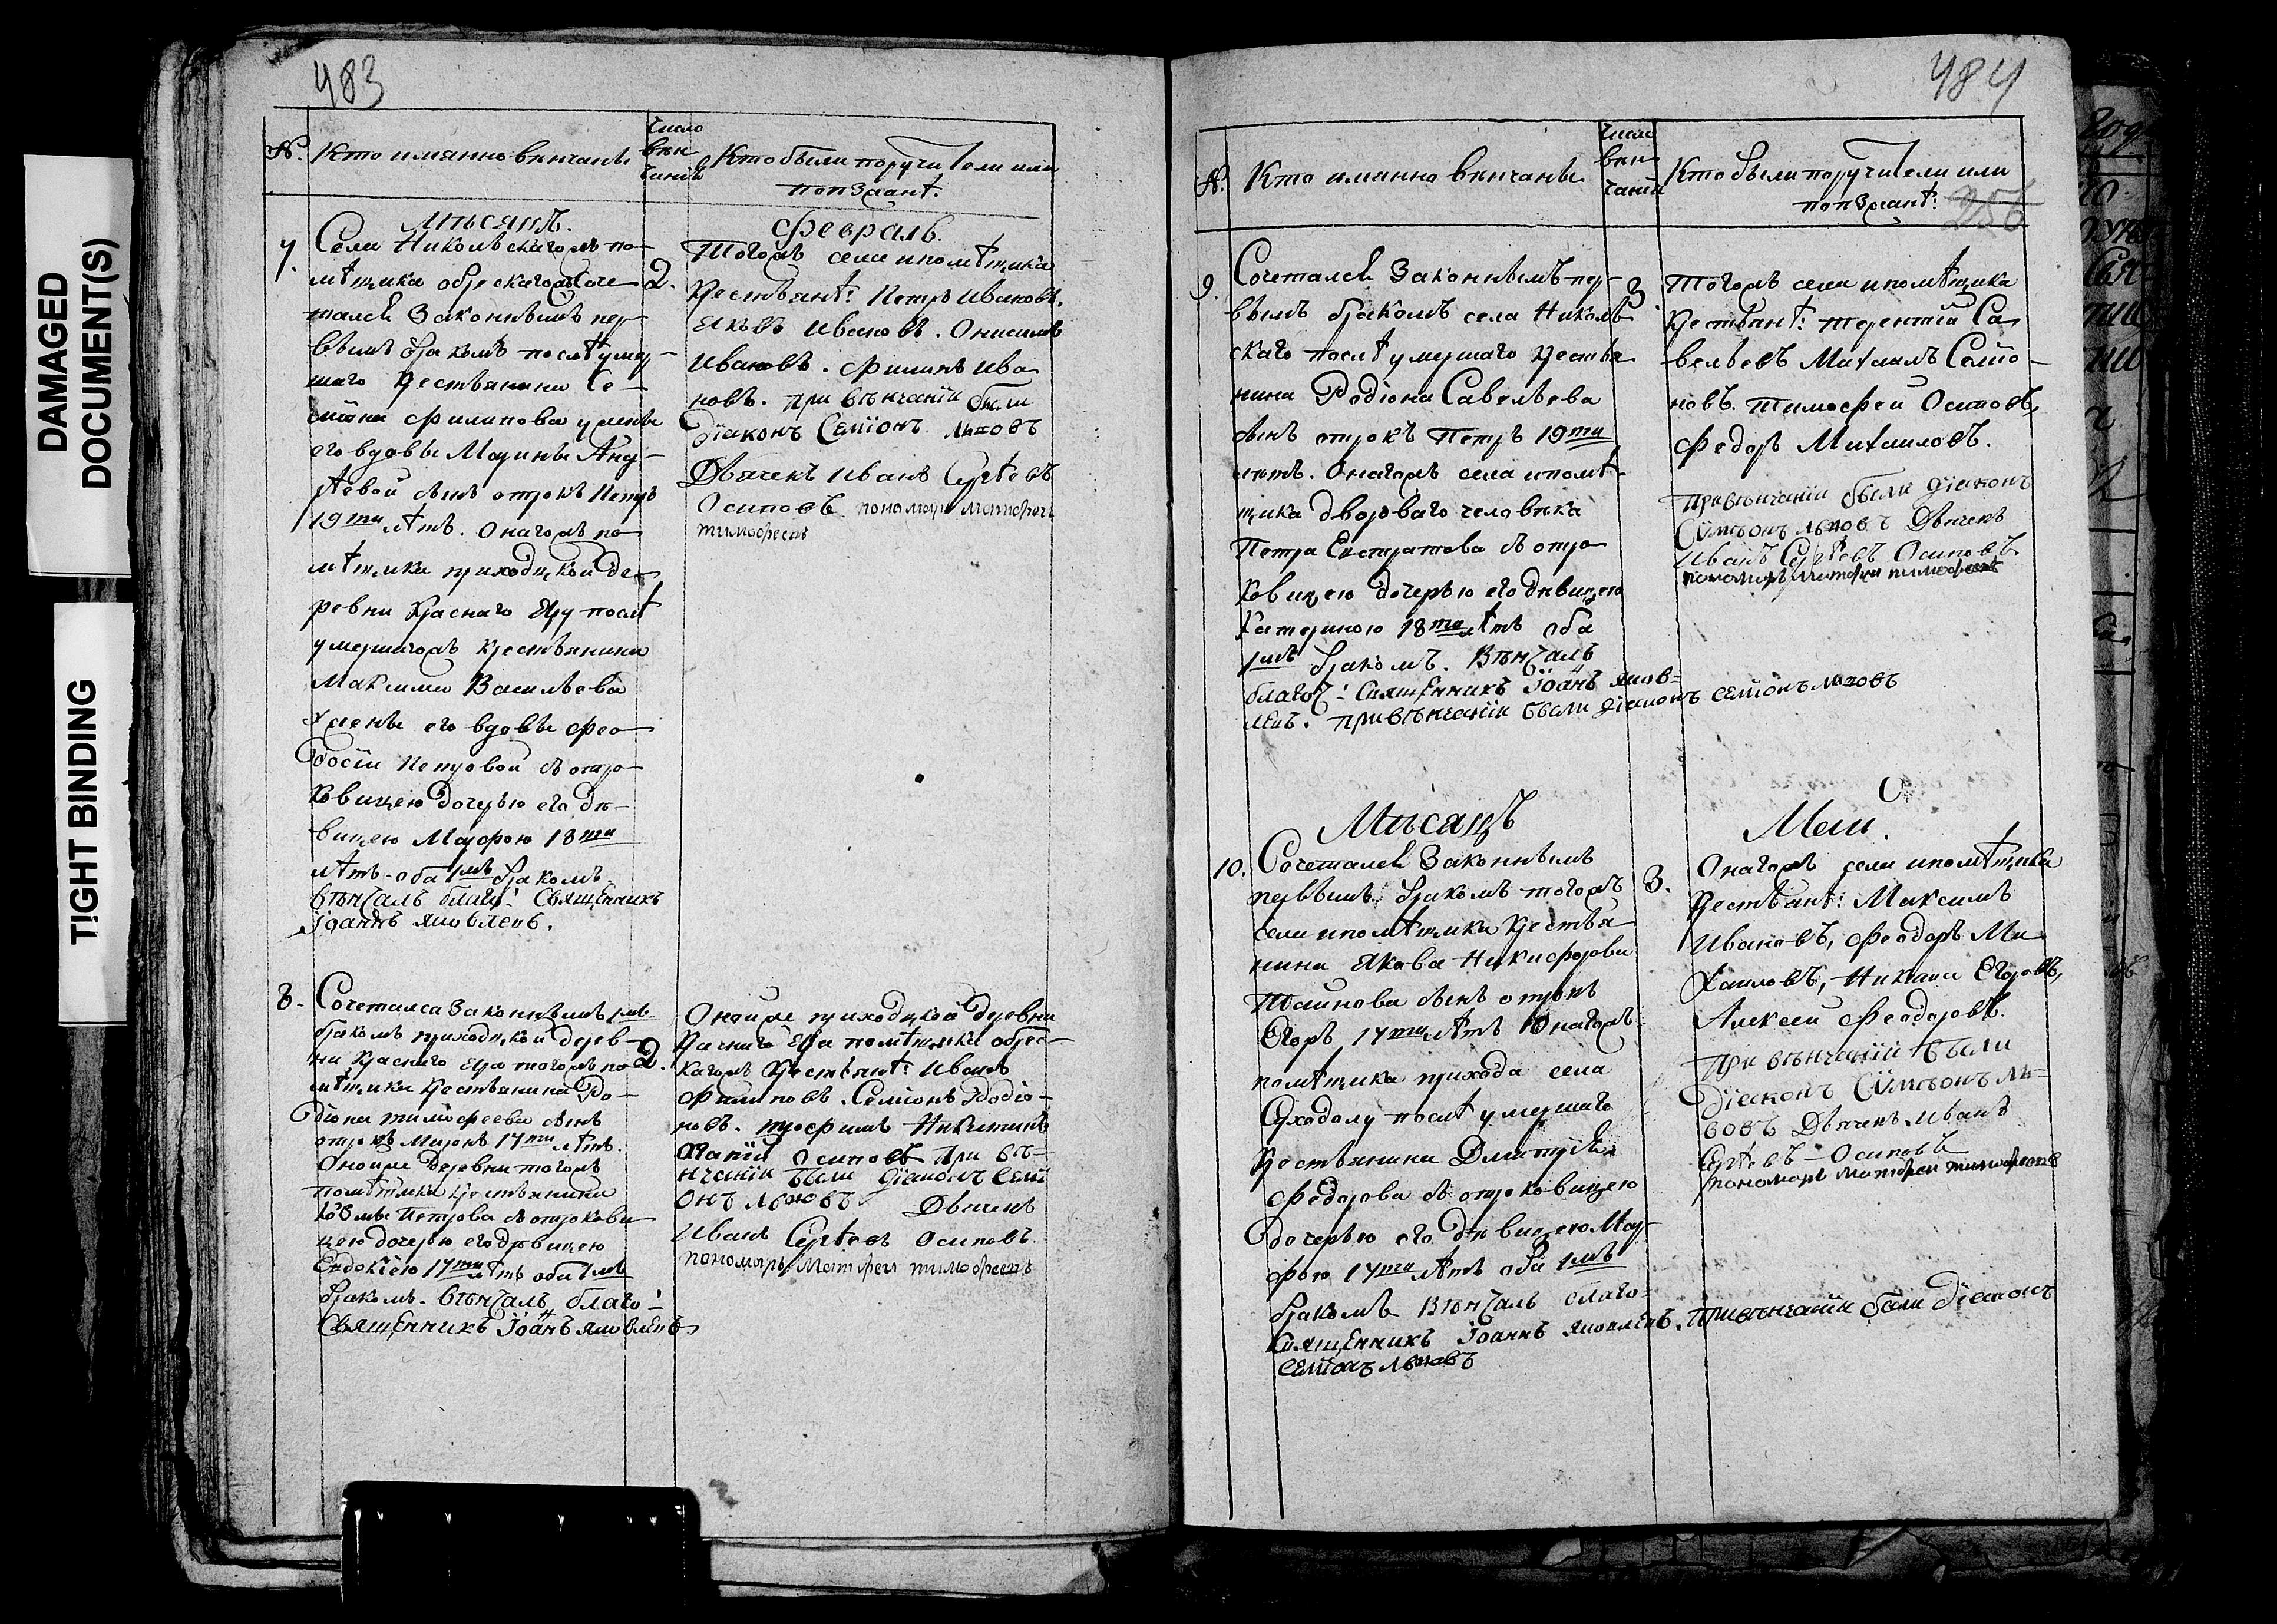 DAMAGED
DOCUMENT(S)
TIGHT BINDING
483
№. Кто имянно венчаны
число
вен
чания
Кто были поручители или
поезжанѣ.
Мѣсяцъ.
Февраль.
7. Села Никольскагожъ по-
мѣщика
сочетался законнымъ пер-
вымъ бракомъ послѣ умер-
шаго крестьянина Се-
миона Филипова жены
его вдовы Марины Анд-
рѣевой сынъ отрокъ Петръ
19ти лѣтъ. Онагожъ по-
мѣщика приходцкой де-
ревни Краснаго Яру послѣ
умершагожъ крестьянина
Максима Васильева
жены его вдовы Фео-
досіи Петровой съ отро-
ковицею дочерью его дѣ-
вицею Марфою 18ти
лѣтъ оба 1мъ бракомъ
вѣнчалъ благо: Священникъ
Іоаннъ Яковлевъ.
2.
Тогожъ села и помѣщика
крестьянѣ: Петръ Ивановъ.
Яковъ Ивановъ. Онисимъ
Ивановъ. Филипъ Ива
новъ. При вѣнчаніи были
діаконъ Семіонъ Львовъ
Дьячекъ Иванъ Сергѣевъ
Осиповъ пономарь Матфей
тимофеевъ
8. Сочетался законнымъ 1мъ
бракомъ приходцкой дерев-
ни Краснаго Яра тогожъ по-
мѣщика крестьянина Ро-
діона Тимофеева сынъ
отрокъ Миронъ 17ти лѣтъ.
Оной же деревни тогожъ
помѣщика крестьянина
Козмы Петрова съ отрокови
цею дочерью его дѣвицею
Евдокіею 17ти лѣтъ оба 1мъ
бракомъ. Вѣнчалъ благо:
Священникъ Іоаннъ Яковлевъ
2.
Оной же приходцкой деревни
Краснаго Яра помѣщика
крестьянѣ: Иванъ
Филиповъ. Семіонъ Родіо-
новъ. Трофимъ Никитинъ
Агапій Осиповъ При вѣ-
нчаніи были діаконъ Семі
онъ Львовъ Дьячекъ
Иванъ Сергѣевъ Осиповъ.
пономарь Матфей тимофеевъ
484
№. Кто имянно венчаны
число
вен
чания
Кто были поручители или
поезжанѣ:
256
9. Сочетался законнымъ пер-
вымъ бракомъ села Николь-
скаго послѣ умершаго крестья
нина Родіона Савельева
сынъ отрокъ Петръ 19ти
летъ. Онагожъ села и помѣ-
щика дворваго человека
Петра Евстратова съ отро
ковицею дочерью его дѣвицею
Катериною 18ти лѣтъ оба
1мъ бракомъ. Вѣнчалъ
благо: Священникъ Іоаннъ Яков-
левъ. При вѣнчаніи были діаконъ Семіонъ Львовъ
3.
Тогожъ села и помѣщика
крестьянѣ: Терентій Са
вельевъ Михаилъ Семіо-
новъ. Тимофей Осиповъ,
Федоръ Михаиловъ.
При вѣнчаніи были діаконъ
Сумеонъ Львовъ Дьячекъ
Иванъ Сергѣевъ Осиповъ
пономарь Матфей тимофеевъ
Мѣсяцъ
Маи.
10. Сочетался законнымъ
первымъ бракомъ тогожъ
села и помѣщика крестья-
нина Якова Никифорова
сынъ отрокъ
Егоръ 17ти лѣтъ Онагожъ
помѣщика прихода села
Суходолу послѣ умершаго
крестьянина Дмитрея
Федорова съ отроковицею
дочерью его дѣвицею Мар-
фою 17ти лѣтъ оба 1мъ
бракомъ Вѣнчалъ благо-
Священникъ Іоаннъ Яковлевъ. При вѣнчаніи были діаконъ
Семіонъ Львовъ
3.
Онагожъ села и помѣщика
крестьянѣ: Максимъ
Ивановъ, Феодоръ Ми
хаиловъ, Никита Егоровъ,
Алексей Феодоровъ.
При вѣнчаніи были
діаконъ Сумеонъ Ль-
вовъ Дьячекъ Иванъ
Сергѣевъ Осиповъ
пономарь Матфей тимофеевъ